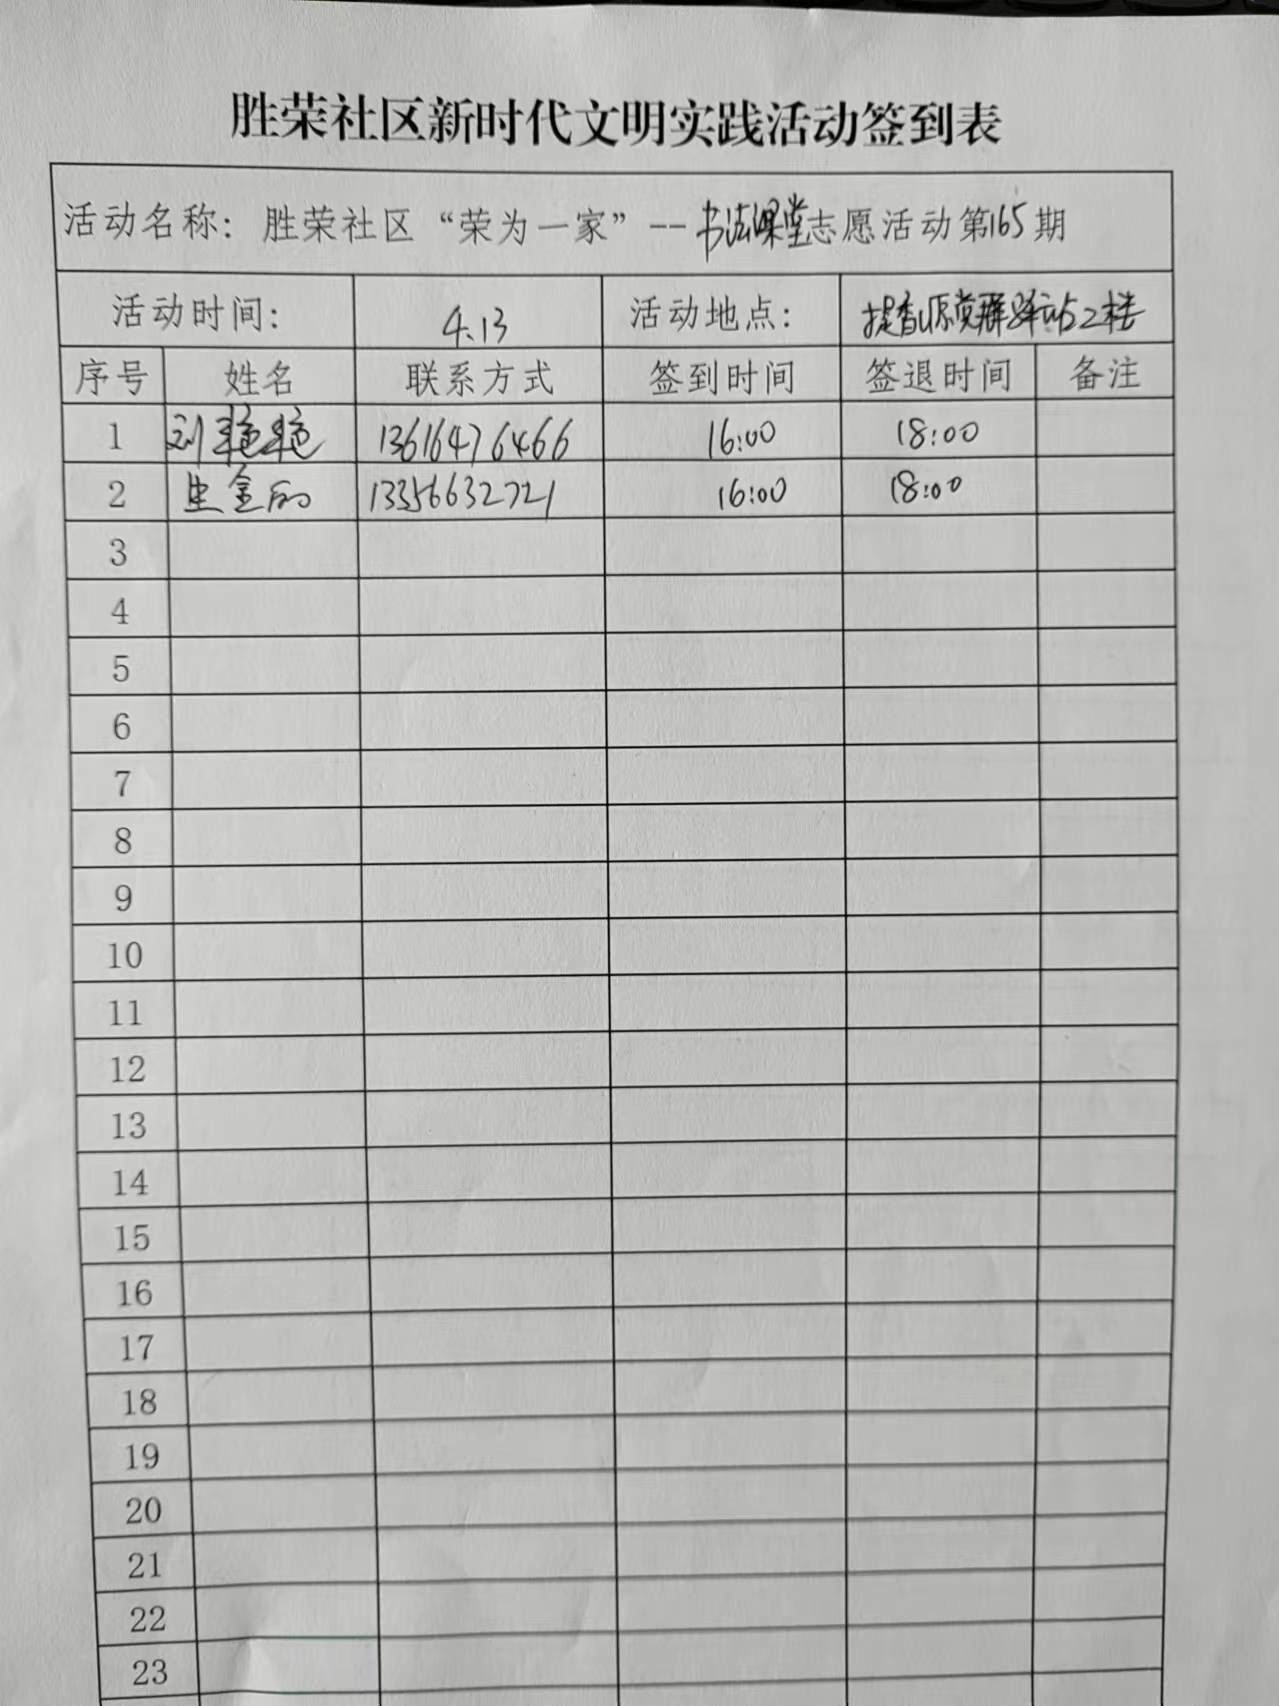 胜荣社区新时代文明实践活动签到表
活动名称：胜荣社区“荣为一家”--书法课堂志愿活动第165期
活动时间： 4.13 活动地点： 提香源党群驿站2楼
序号 姓名 联系方式 签到时间 签退时间 备注
1 刘艳艳 13616476466 16:00 18:00
2 金 13356632721 16:00 18:00
3
4
5
6
7
8
9
10
11
12
13
14
15
16
17
18
19
20
21
22
23